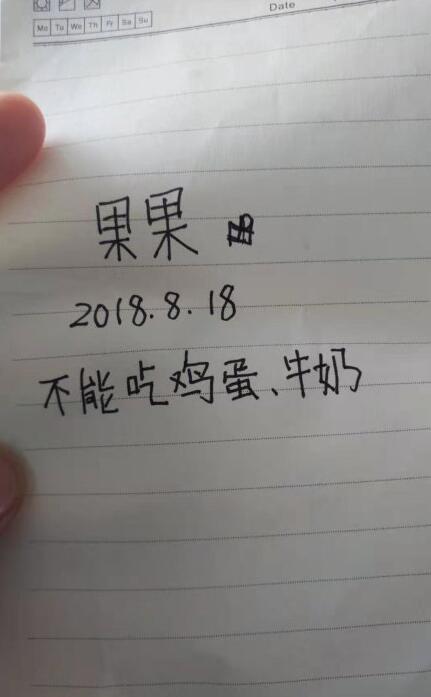 Date
Mo Tu We Th Fr Sa Su
果果
2018.8.18
不能吃鸡蛋、牛奶